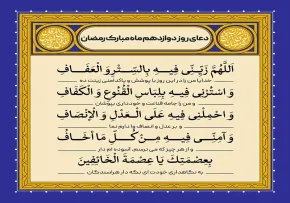 دعای روز دوازدهم ماه مبارک رمضان
اَللّهُمَّ زَیِّنّی فیهِ بِالسَّتْرِ وَ الْعَفافِ
خدایا من را در این روز با پوشش و پاکدامنی زینت ده
وَ اسْتُرْنی فیهِ بِلِباسِ الْقُنُوعِ وَ الْکَفافِ
و من را جامه قناعت و خودداری بپوشان
وَ احْمِلْنی فیهِ عَلَی الْعَدْلِ وَ الْاِنْصافِ
و بر عدل و انصاف وا دارم نما
وَ آمِنّی فیهِ مِنْ کُلِّ ما اَخافُ
و از هر چیز که می ترسم، آسوده ام دار
بِعِصْمَتِکَ یا عِصْمَةَ الْخائِفینَ
به نگاهداری خودت ای نگه دار هراسندگان